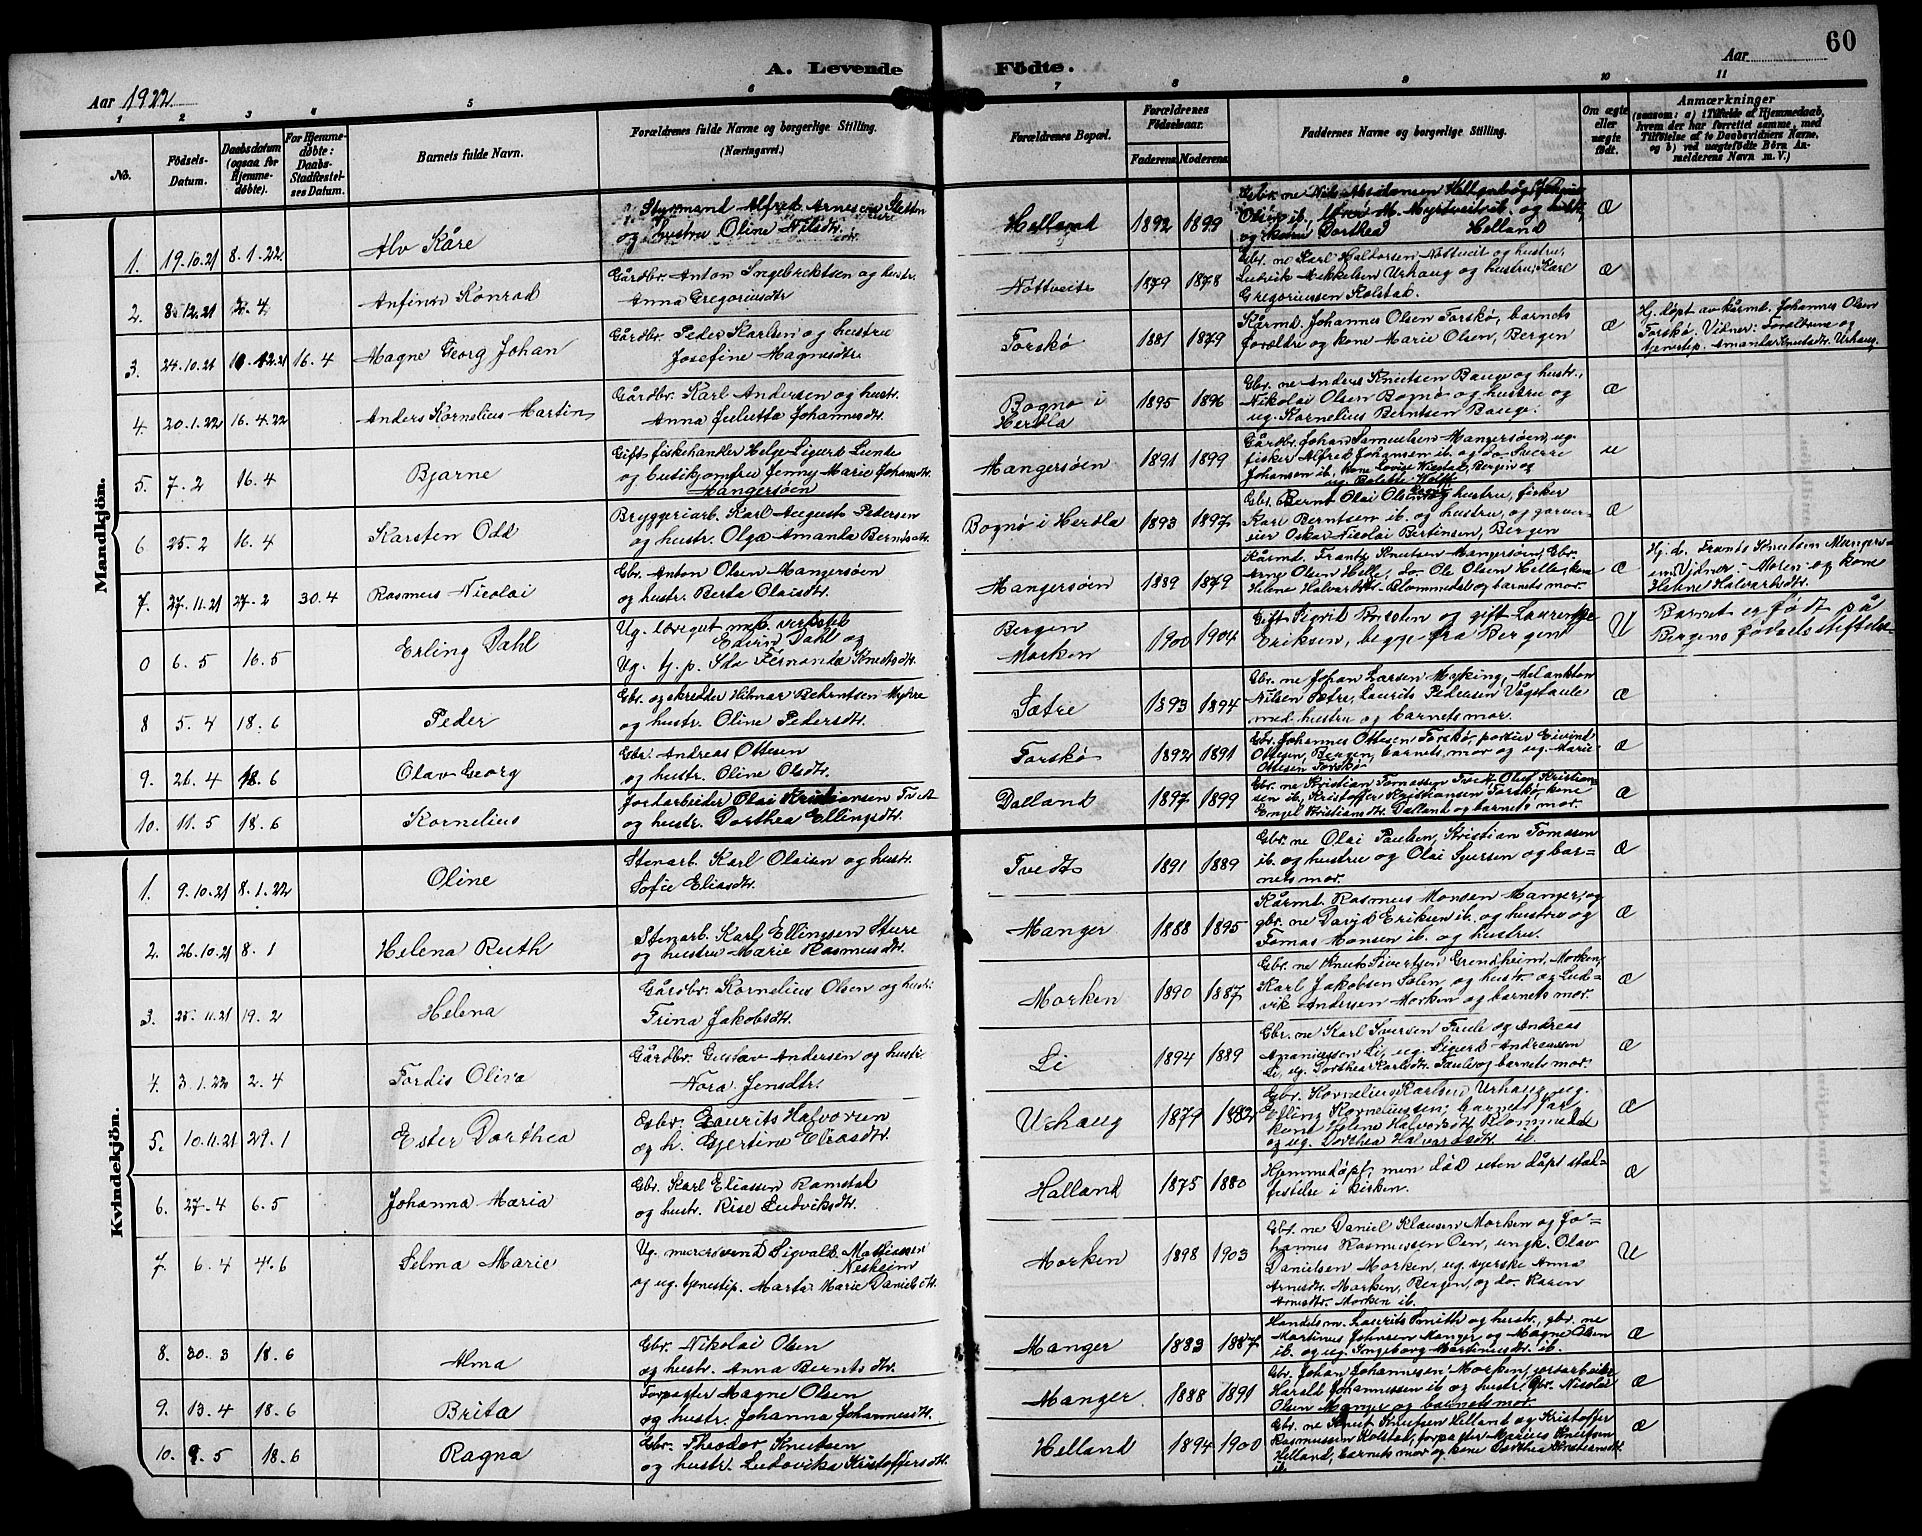 60
A. Levende Födte.
Aar 1922
Aar
1 2 3 4 5 6 7 8 9 10 11
No.
Födsels-
Datum.
Daabsdatum
(ogsaa for
Hjemme-
døbte).
For Hjemme-
døbte:
Daabs-
Stadfæstel-
ses Datum.
Barnets fulde Navn.
Forældrenes fulde Navne og borgerlige Stilling.
(Næringsvei.)
Forældrenes Bopæl.
Forældrenes
Fødselsaar.
Faderens Moderens
Faddernes Navne og borgerlige Stilling.
Om ægte
eller
uægte
født.
Anmærkninger
(saasom: a) i Tilfælde af Hjemmedaab,
hvem der har forrettet samme, med
Tilføielse af to Daabsvidners Navne,
og b) ved uægtefødte Börn An-
melderens Navn m. V.)
Mandkjön.
1. 19.10.21 8.1.22 Alv Kåre
Styrmand Alfred Arnesen Sletten
og hustru Oline Nilsdtr.
Helland 1892 1899
og kone Dorthea Helland
æ
2. 8.12.21 2.4 Anfinn Konrad
Gårdbr. Anton Ingebrektsen og hustr.
Anna Gregoriusdtr
Nöttveit 1879 1878
Gbr. ne Karl Haldorsen Nöttveit og hustru,
Ludvik Mikkelsen Urhaug og hustru, Karl
Gregoriussen Kolstad.
æ
3. 24.10.21 16.4 Magne Georg Johan
Gårdbr. Peder Karlsen og hustru
Josefine Magnesdtr
Forskø 1881 1879
Kårmd. Johannes Olsen Forskø, barnets
forældre og kone Marie Olsen, Bergen
æ
Hj. døpt av kårmd. Johannes Olsen
Forskø. Vidner: Forældrene og
tjenestep. Amanda Knutsdtr. Urhaug.
4. 20.1.22 16.4.22 Anders Kornelius Martin
Gårdbr. Karl Andersen og hustr.
Anna Juletta Johannesdtr.
Bognø i
Herdla 1895 1896
Gbr. ne Anders Knutsen Bauge og hustr.,
Nikolai Olsen Bognø og hustru og
ug. Kornelius Berntsen Bauge.
æ
5. 7.2 16.4 Bjarne
Gift fiskehandler Helge Sigurd Liente
og butikjomfru Jenny Marie Johansdtr.
Mangersøen
Mangersøen 1891 1899
Gårdbr. Johan Samuelsen Mangersøen, ug.
fisker Alfred Johansen ib. og do. Sverre
u
6 25.2 16.4 Karsten Odd
Bryggeriarb. Karl August Pedersen
og hustr. Olga Amanda Berntsdtr.
Bognø i Herdla 1893 1897
Gbr. Bernt Olai Olsen og hustru, fisker
Karl Berntsen ib. og hustru, og garver-
sven Oskar Nicolai Bertinsen, Bergen
æ
7. 27.11.21 27.2 30.4 Rasmus Nicolai
Gbr. Anton Olsen Mangersøen
og hustr. Berta Olaisdtr.
Mangersøen 1889 1879
Kårmd. Frants Knutsen Mangersøen, Gbr.
Arne Olsen Helle, do. Ole Olsen Helle, kone
Helene Halvardtr. Blommedal og barnets mor.
æ
Hj. d. Frants Knutsen Mangers-
øen. Vidner: Moren og kone
Helene Halvardsdtr.
0 6.5 16.5 Erling Dahl
Ug. læregut mek. verksted
Edvin Dahl og
Ug. tj. p. Ida Fernanda Knudsdtr.
Bergen
Morken 1900 1904
Eriksen, begge fra Bergen
U
Barnet er født på
Bergens fødselsstiftelse
8 5.4 18.6 Peder
Gbr. og skredder Hilmar Berntsen Myhre
og hustr. Oline Pedersdtr.
Sætre 1893 1894
Gbr. ne Johan Larsen Myking, Melankton
Nilsen Sætre, Laurits Pedersen Vågstaule
med hustru og barnets mor.
æ
9. 26.4 18.6 Olav Georg
Gbr. Andreas Ottesen
og hustr. Oline Olsdtr.
Forskø 1892 1891
Gbr. Johannes Ottesen Forskø, portier Eivind
Ottesen, Bergen, barnets mor og ug. Marie
Ottesen Forskø
æ
10. 11.5 18.6 Kornelius
Jordarbeider Olai Kristiansen Tvedt
og hustr. Dorthea Ellingsdtr.
Dalland 1897 1899
Gbr. ne Kristian Tomassen Tvedt, Oluf Kristian-
sen ib., Kristoffer Kristiansen Forskø, kone
Engel Kristiansdtr. Dalland og barnets mor.
æ
Kvindekjön.
1. 9.10.21 8.1.22 Oline
Stenarb. Karl Olaisen og hustr.
Sofie Eliasdtr.
Tvedt 1891 1889
Gbr. ne Olai Paulsen, Kristian Tomasen
ib. og hustru og Olai Sjursen og bar=
nets mor.
æ
2. 26.10.21 8.1 Helena Ruth
Stenarb. Karl Ellingsen Sture
og hustru Marie Rasmusdtr.
Manger 1888 1895
Kårmd. Rasmus Monsen Manger, og
gbr. ne David Eriksen ib. og hustru og
Tomas Monsen ib. og hustru.
æ
3. 25.11.21 19.2 Helena
Gårdbr. Kornelius Olsen og hustr.
Trina Jakobsdtr.
Morken 1890 1887
Gbr. ne Knut Sivertsen Grendheim, Morken,
Karl Jakobsen Solen og hustr. og Lud=
vik Andersen Morken og barnets mor.
æ
4. 3.1.22 2.4 Tordis Oliva
Gårdbr. Gustav Andersen og hustr.
Nora Jensdtr.
Li 1894 1889
Gbr. ne Karl Iversen Taule og Andreas
Ananiassen Li, ug. Sigurd Andreassen
Li, ug. Dorthea Karlsdtr. Taule og barnets mor.
æ
5. 10.11.21 29.1 Ester Dorthea
Gbr. Laurits Halvorsen
og h. Gjertine Eliasdtr.
Urhaug 1874 1882
Gbr. Kornelius Karlsen Urhaug, ug.
Elling Korneliussen, barnets far,
kone Helene Halvorsdtr. Blommedal
og ug. Dorthea Halvardsdtr. ib.
æ
6. 27.4 6.5 Johanna Maria
Gbr. Karl Eliassen Ramstad
og hustr. Rise Ludviksdtr.
Halland 1875 1880
Hjemmedøpt, men død uten dåpt stad=
festelse i kirken.
æ
7. 6.4 4.6 Selma Marie
Ug. murersvend Sigvald Mathiassen
Nesheim
og ug. tjenestep. Marta Marie Danielsdtr.
Morken 1898 1903
Gbr. ne Daniel Klausen Morken og Jo=
hannes Rasmussen Oen, ungk. Olav
Danielsen Morken, ug. syerske Anna
Arnesdtr. Morken, Bergen, og do. Karen
Arnesdtr. Morken ib.
U
8. 30.3 18.6 Alma
Gbr. Nikolai Olsen
og hustr. Anna Berntsdtr.
Manger 1883 1887
Handelsm. Laurits Smith og hustr., gbr. ne
Martinus Johnsen Manger og Magne Olsen
ib. og ug. Ingeborg Martinusdtr. ib.
æ
9. 13.4 18.6 Brita
Forpagter Magne Olsen
og hustr. Johanna Johannesdtr.
Manger. 1888 1891
Gbr. Johan Johannesen Morken, jordarbeider
Harald Johannessen ib og hustr. Gbr. Nicolai
Olsen Manger og barnets mor.
æ
10. 9.5 18.6 Ragna
Gbr. Theodor Knutsen
og hustr. Ludovika Kristoffersdtr.
Helland 1894 1900
Gbr. ne Knut Knutsen Helland og Kristoffer
Rasmussen Kolstad, forpagter Marius Knutsen
Helland, barnets mor og kone Dorthea Kristiansdtr.
ib.
æ